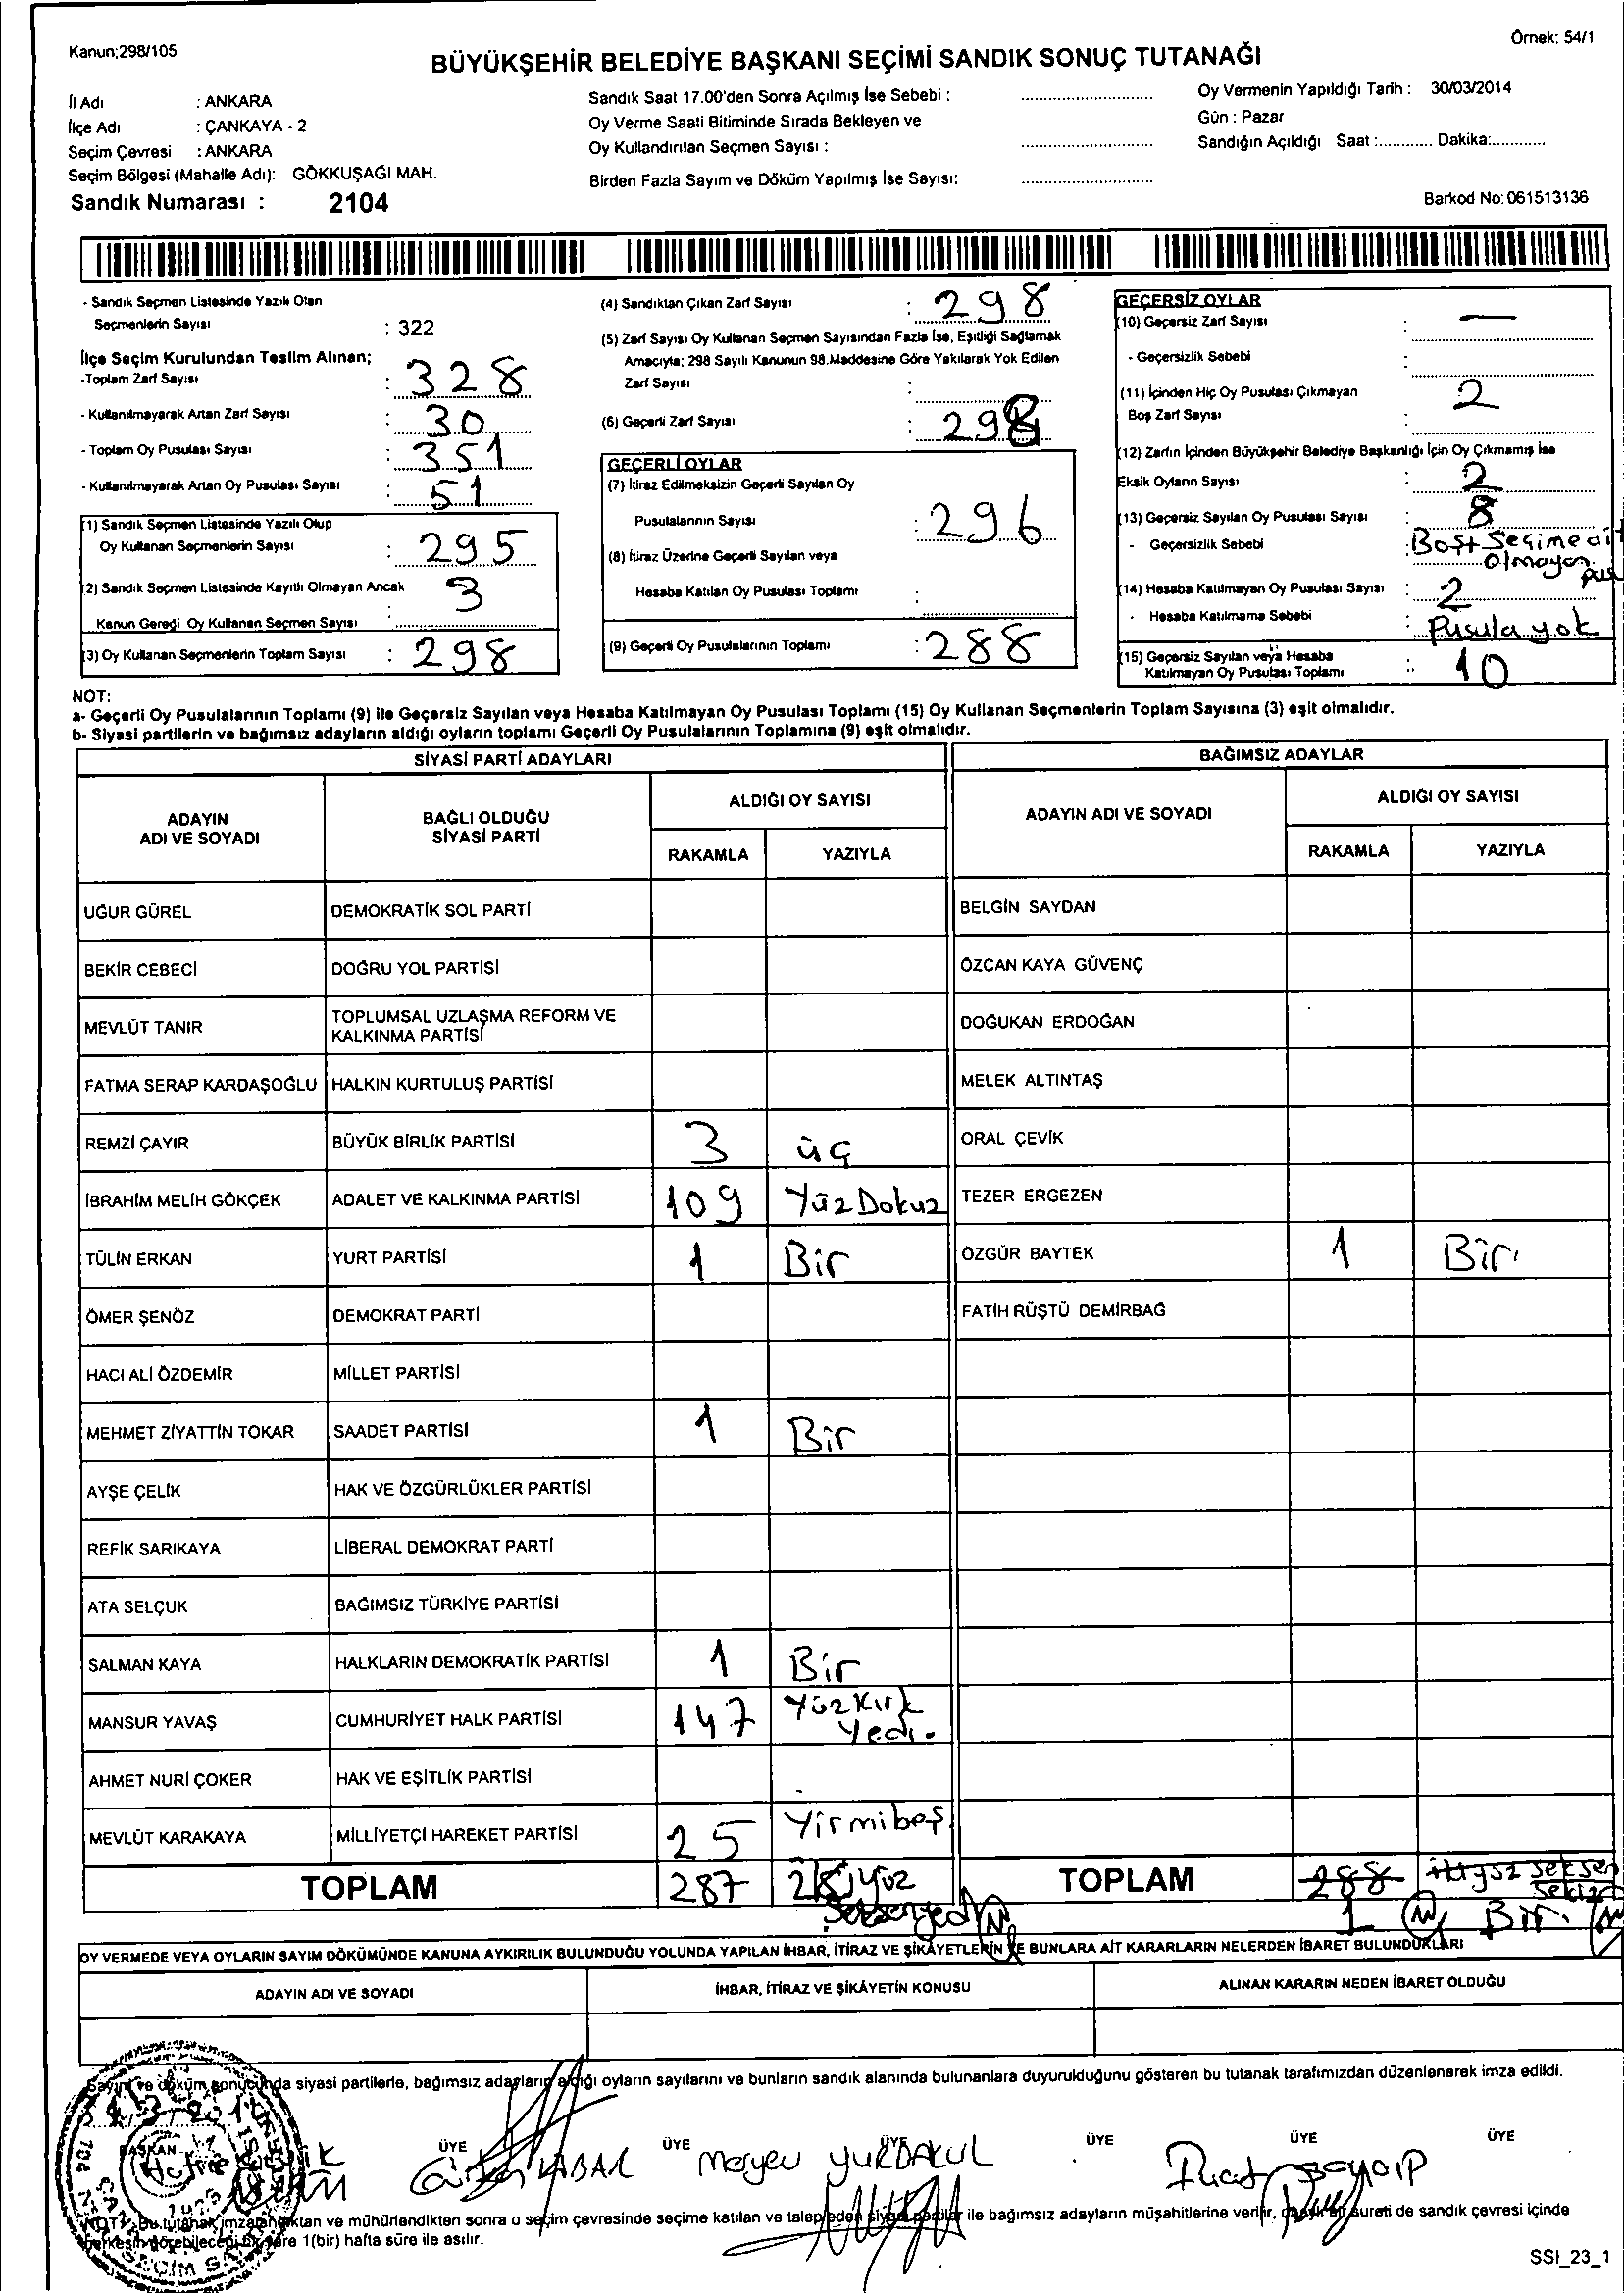 Kanun;298/105
Örnek: 54/1
BÜYÜKŞEHİR BELEDİYE BAŞKANI SEÇİMİ SANDIK SONUÇ TUTANAĞI
İl Adı : ANKARA
İlçe Adı : ÇANKAYA - 2
Seçim Çevresi : ANKARA
Seçim Bölgesi (Mahalle Adı): GÖKKUŞAĞI MAH.
Sandık Numarası : 2104
Sandık Saat 17.00'den Sonra Açılmış İse Sebebi :
Oy Verme Saati Bitiminde Sırada Bekleyen ve
Oy Kullandırılan Seçmen Sayısı :
Birden Fazla Sayım ve Döküm Yapılmış İse Sayısı:
Oy Vermenin Yapıldığı Tarih : 30/03/2014
Gün : Pazar
Sandığın Açıldığı Saat :............ Dakika:............
Barkod No: 061513136
- Sandık Seçmen Listesinde Yazılı Olan
Seçmenlerin Sayısı : 322
İlçe Seçim Kurulundan Teslim Alınan;
-Toplam Zarf Sayısı : 328
- Kullanılmayarak Artan Zarf Sayısı : 30
- Toplam Oy Pusulası Sayısı : 351
- Kullanılmayarak Artan Oy Pusulası Sayısı : 51
(1) Sandık Seçmen Listesinde Yazılı Olup
Oy Kullanan Seçmenlerin Sayısı : 295
(2) Sandık Seçmen Listesinde Kayıtlı Olmayan Ancak
Kanun Gereği Oy Kullanan Seçmen Sayısı : 3
(3) Oy Kullanan Seçmenlerin Toplam Sayısı : 298
(4) Sandıktan Çıkan Zarf Sayısı : 298
(5) Zarf Sayısı Oy Kullanan Seçmen Sayısından Fazla İse, Eşitliği Sağlamak
Amacıyla; 298 Sayılı Kanunun 98.Maddesine Göre Yakılarak Yok Edilen
Zarf Sayısı :
(6) Geçerli Zarf Sayısı : 298
GEÇERLİ OYLAR
(7) İtiraz Edilmeksizin Geçerli Sayılan Oy
Pusulalarının Sayısı : 296
(8) İtiraz Üzerine Geçerli Sayılan veya
Hesaba Katılan Oy Pusulası Toplamı :
(9) Geçerli Oy Pusulalarının Toplamı : 288
GEÇERSİZ OYLAR
(10) Geçersiz Zarf Sayısı : —
- Geçersizlik Sebebi :
(11) İçinden Hiç Oy Pusulası Çıkmayan
Boş Zarf Sayısı : 2
(12) Zarfın İçinden Büyükşehir Belediye Başkanlığı İçin Oy Çıkmamış İse
Eksik Oyların Sayısı : 2
(13) Geçersiz Sayılan Oy Pusulası Sayısı : 8
- Geçersizlik Sebebi : Boş+Seçime ait
olmayan pus
(14) Hesaba Katılmayan Oy Pusulası Sayısı : 2
- Hesaba Katılmama Sebebi : Pusula yok
(15) Geçersiz Sayılan veya Hesaba
Katılmayan Oy Pusulası Toplamı : 10
NOT:
a- Geçerli Oy Pusulalarının Toplamı (9) ile Geçersiz Sayılan veya Hesaba Katılmayan Oy Pusulası Toplamı (15) Oy Kullanan Seçmenlerin Toplam Sayısına (3) eşit olmalıdır.
b- Siyasi partilerin ve bağımsız adayların aldığı oyların toplamı Geçerli Oy Pusulalarının Toplamına (9) eşit olmalıdır.
SİYASİ PARTİ ADAYLARI
BAĞIMSIZ ADAYLAR
ADAYIN
ADI VE SOYADI
BAĞLI OLDUĞU
SİYASİ PARTİ
ALDIĞI OY SAYISI
RAKAMLA YAZIYLA
ADAYIN ADI VE SOYADI
ALDIĞI OY SAYISI
RAKAMLA YAZIYLA
UĞUR GÜREL DEMOKRATİK SOL PARTİ BELGİN SAYDAN
BEKİR CEBECİ DOĞRU YOL PARTİSİ ÖZCAN KAYA GÜVENÇ
MEVLÜT TANIR TOPLUMSAL UZLAŞMA REFORM VE
KALKINMA PARTİSİ DOĞUKAN ERDOĞAN
FATMA SERAP KARDAŞOĞLU HALKIN KURTULUŞ PARTİSİ MELEK ALTINTAŞ
REMZİ ÇAYIR BÜYÜK BİRLİK PARTİSİ 3 üç ORAL ÇEVİK
İBRAHİM MELİH GÖKÇEK ADALET VE KALKINMA PARTİSİ 109 YüzDokuz TEZER ERGEZEN
TÜLİN ERKAN YURT PARTİSİ 1 Bir ÖZGÜR BAYTEK 1 Bir
ÖMER ŞENÖZ DEMOKRAT PARTİ FATİH RÜŞTÜ DEMİRBAĞ
HACI ALİ ÖZDEMİR MİLLET PARTİSİ
MEHMET ZİYATTİN TOKAR SAADET PARTİSİ 1 Bir
AYŞE ÇELİK HAK VE ÖZGÜRLÜKLER PARTİSİ
REFİK SARIKAYA LİBERAL DEMOKRAT PARTİ
ATA SELÇUK BAĞIMSIZ TÜRKİYE PARTİSİ
SALMAN KAYA HALKLARIN DEMOKRATİK PARTİSİ 1 Bir
MANSUR YAVAŞ CUMHURİYET HALK PARTİSİ 147 Yüzkırk
Yedi.
AHMET NURİ ÇOKER HAK VE EŞİTLİK PARTİSİ
MEVLÜT KARAKAYA MİLLİYETÇİ HAREKET PARTİSİ 25 Yirmibeş
TOPLAM 287 TOPLAM 288
Seksenyedi 1 Bir.
OY VERMEDE VEYA OYLARIN SAYIM DÖKÜMÜNDE KANUNA AYKIRILIK BULUNDUĞU YOLUNDA YAPILAN İHBAR, İTİRAZ VE ŞİKÂYETLERİN VE BUNLARA AİT KARARLARIN NELERDEN İBARET BULUNDUKLARI
ADAYIN ADI VE SOYADI İHBAR, İTİRAZ VE ŞİKÂYETİN KONUSU ALINAN KARARIN NEDEN İBARET OLDUĞU
Sayım ve döküm sonucunda siyasi partilerle, bağımsız adayların aldığı oyların sayılarını ve bunların sandık alanında bulunanlara duyurulduğunu gösteren bu tutanak tarafımızdan düzenlenerek imza edildi.
BAŞKAN ÜYE ÜYE ÜYE ÜYE ÜYE ÜYE
Meryem YURDAKUL
NOT: Bu tutanak imzalandıktan ve mühürlendikten sonra o seçim çevresinde seçime katılan ve talep eden siyasi partiler ile bağımsız adayların müşahitlerine verilir, onaylı bir sureti de sandık çevresi içinde
herkesin görebileceği bir yere 1(bir) hafta süre ile asılır.
SSI_23_1